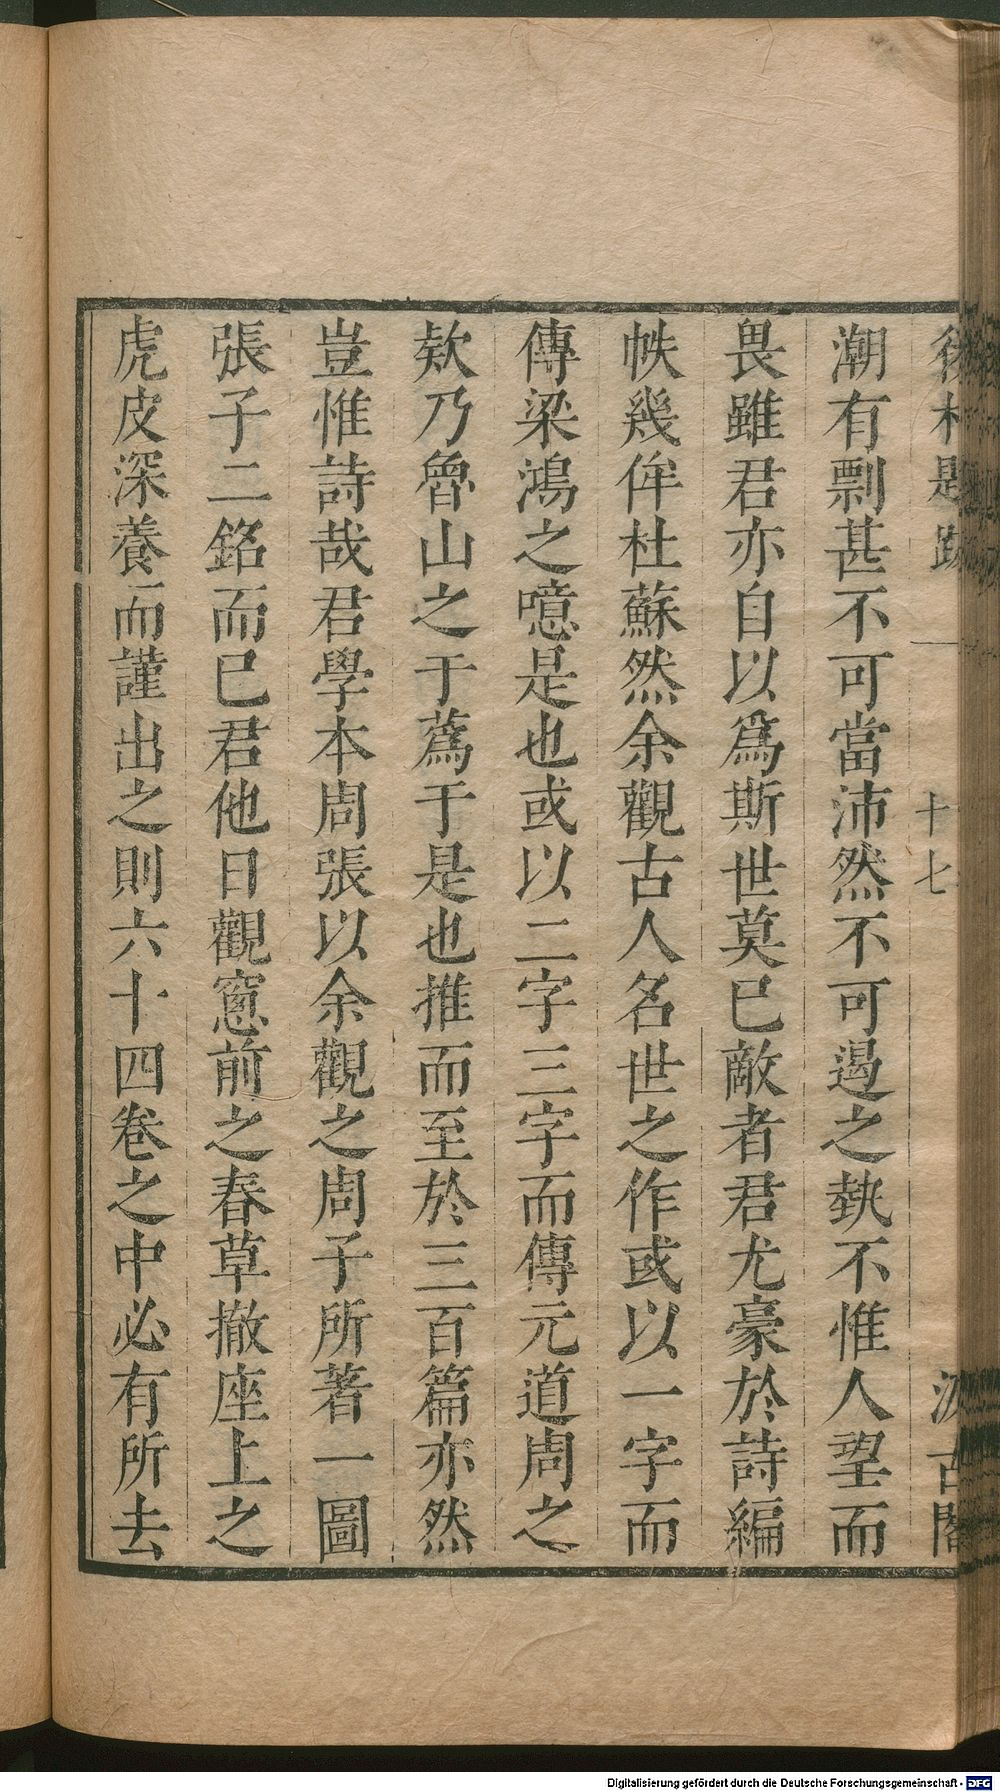 後村題跋 十七 汲古閣
潮有剽甚不可當沛然不可遏之埶不惟人望而
畏雖君亦自以爲斯世莫已敵者君尤豪於詩編
帙幾侔杜蘇然余觀古人名世之作或以一字而
傳梁鴻之噫是也或以二字三字而傳元道周之
欸乃魯山之于蔿于是也推而至於三百篇亦然
豈惟詩哉君學本周張以余觀之周子所著一圖
張子二銘而已君他日觀窻前之春草撤座上之
虎皮深養而謹出之則六十四卷之中必有所去
Digitalisierung gefördert durch die Deutsche Forschungsgemeinschaft - DFG